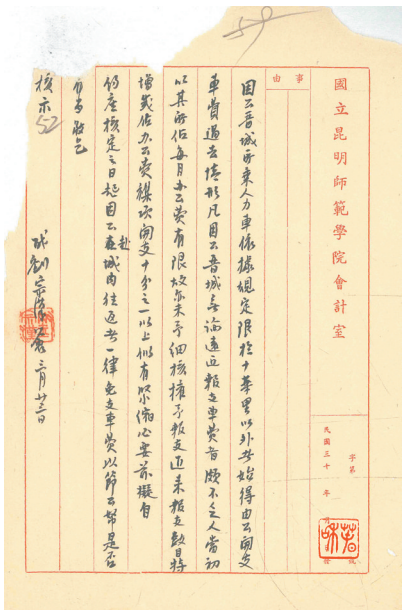 國立昆明師範學院會計室
事由
字第 號
民國三十 年 月 日發
因公晉城所乘人力車依據規定限於十華里以外者始得由公開支
車費過去情形凡因公晉城無論遠近報支車費者頗不乏人當初
以其所佔每月辦公費有限故亦未予細核擁予報支近來報支數目特
增幾佔辦公費款項開支十分之一以上似有緊縮必要茲擬自
鈞座核定之日起因公赴城內往返者一律免支車費以節公帑是否
有當敬乞
核示
52
職劉 三月廿三日